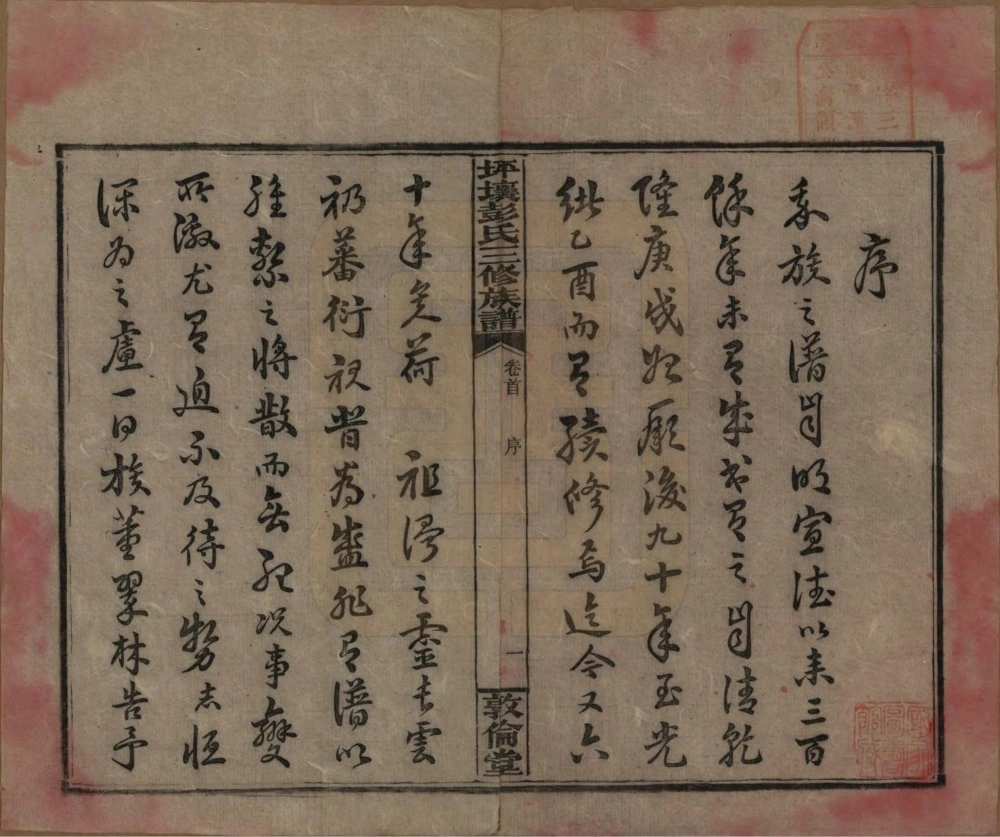 序
吾族之譜肖明宣德以來三百
餘年未有成書有之肖清乾
隆庚戌始厥後九十年至光
緒乙酉而有續修焉迄今又六
坪壤彭氏三修族譜
卷首
序
一
敦倫堂
十年矣荷 祖澤之靈长雲
礽蕃衍視昔為盛非有譜以
維繫之將散而無紀況事變
所激尤有迫不及待之勢志恒
深為之慮一日族董翠林告予